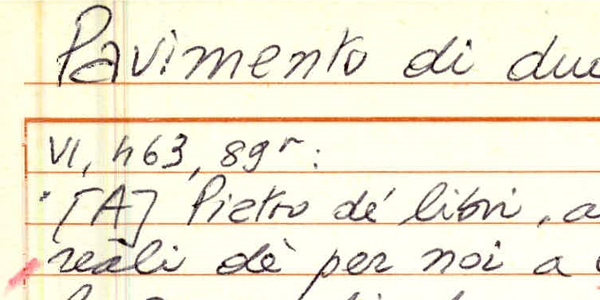 Pavimento di due
VI, 463, 89r:
"[A] Pietro dé libri, a
reali dè per noi a